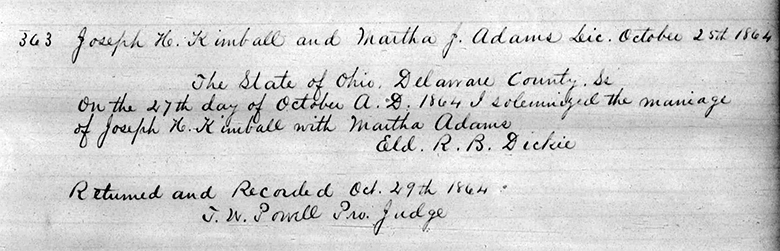 363 Joseph H. Kimball and Martha J. Adams Lic. October 25th 1864
The State of Ohio, Delaware County, Ss
On the 27th day of October A.D. 1864 I solemnized the marriage
of Joseph H. Kimball with Martha Adams
Eld. R. B. Dickie
Returned and Recorded Oct. 29th 1864.
T. W. Powell Pro. Judge